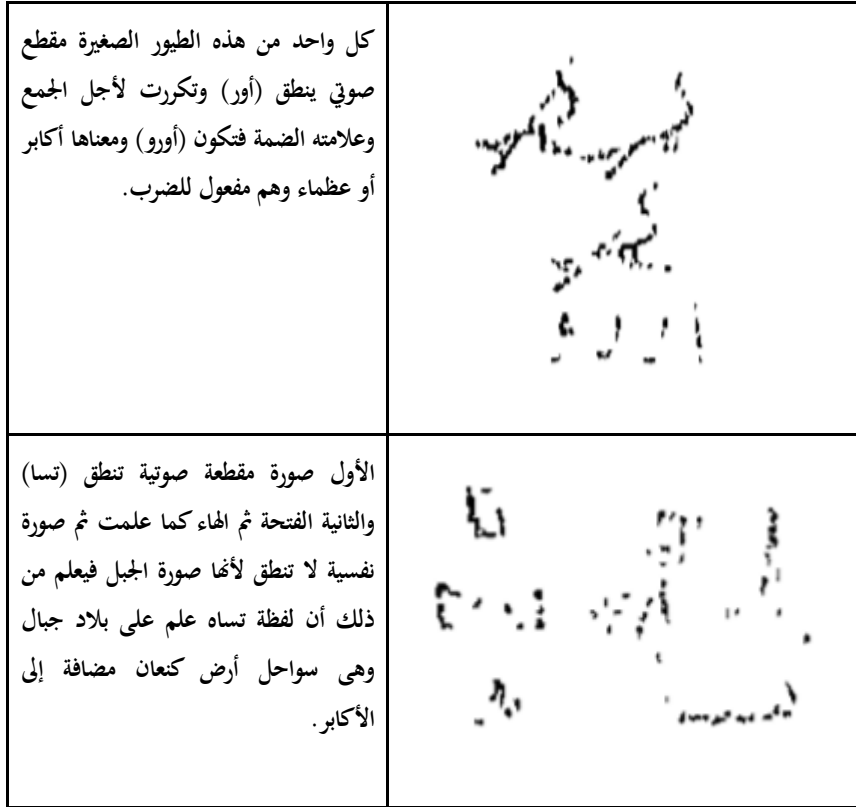 كل واحد من هذه الطيور الصغيرة مقطع
صوتي ينطق (أور) وتكررت لأجل الجمع
وعلامته الضمة فتكون (أورو) ومعناها أكابر
أو عظماء وهم مفعول للضرب.
الأول صورة مقطعة صوتية تنطق (تسا)
والثانية الفتحة ثم الهاء كما علمت ثم صورة
نفسية لا تنطق لأنها صورة الجبل فيعلم من
ذلك أن لفظة تساه علم على بلاد جبال
وهى سواحل أرض كنعان مضافة إلى
الأكابر.